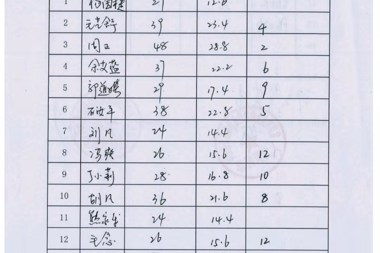 1 21 12.6
2 39 23.4 4
3 周正 48 28.8 2
4 37 22.2 6
5 29 17.4 9
6 38 22.8 5
7 刘凡 24 14.4
8 冯爽 26 15.6 12
9 丁小莉 28 16.8 10
10 胡凡 36 21.6 8
11 24 14.4
12 毛念 26 15.6 12